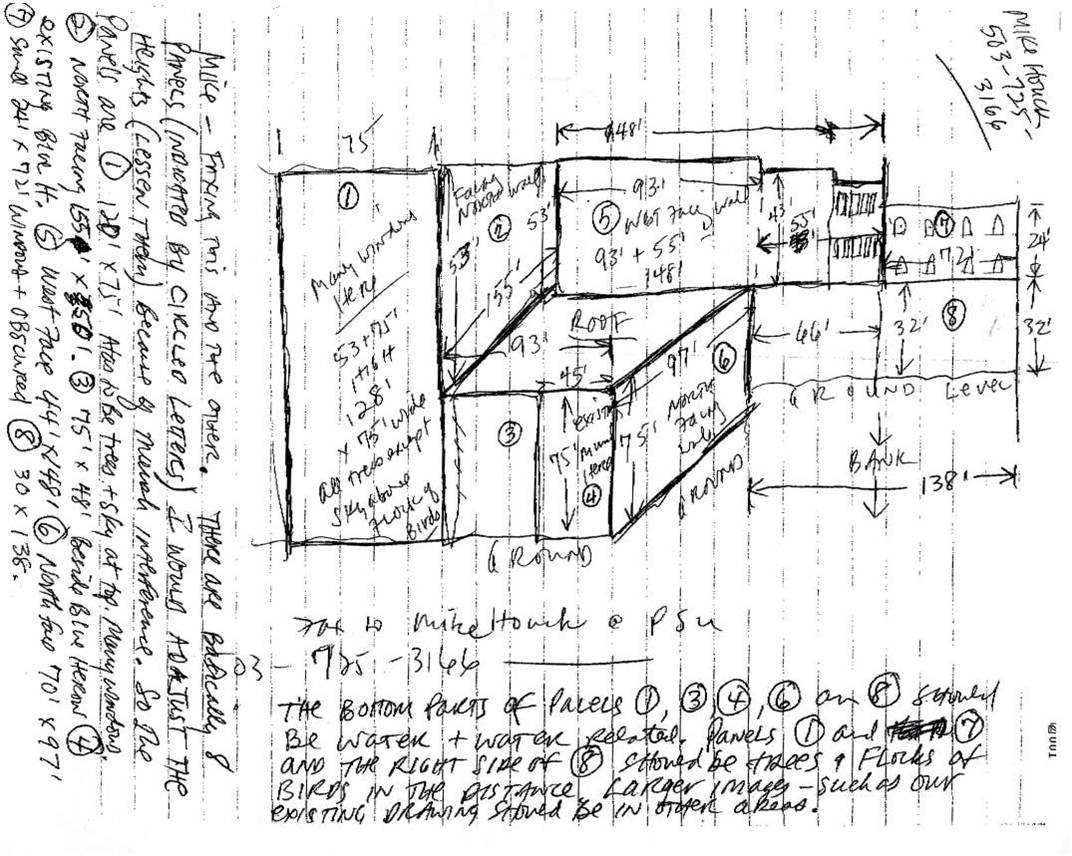 MIKE HOUCK
503-725-
3166
Mike - Faxing this and the other. There are basically 8
panels (indicated by circled letters) I would ADJUST THE
Heights (Lessen them) because of mural interference. So the
Panels are ① 128' x 75' Also to be trees + sky at top. Many windows.
② North facing 155' x 50'. ③ 75' x 48' beside Blue Heron ④
existing Blue H. ⑤ West Face 44' x 148' ⑥ North face 70' x 97'
⑦ small 24' x 72' window + obscured ⑧ 30 x 138.
75'
①
Many windows
Here
53 + 75'
128'
x 75' wide
all trees except
sky above
Flock of
Birds
Facing
North wall
②
53'
53'
155'
148'
93'
⑤ West Facing wall
93' + 55'
148'
43'
55'
⑦
72'
24'
ROOF
93'
45'
97'
⑥
North
Facing
wall
75'
③
existing
75' mural
Heron
④
GROUND
GROUND
66'
32'
⑧
32'
GROUND LEVEL
BANK
138'
Fax to Mike Houck @ PSU
03-725-3166
THE BOTTOM PARTS OF PANELS ①, ③, ④, ⑥ an ⑧ should
BE WATER + WATER Related. Panels ① and ⑦
AND THE RIGHT SIDE OF ⑧ should be trees & Flocks of
BIRDS IN THE DISTANCE. Larger images - such as our
existing DRAWING should BE in other areas.